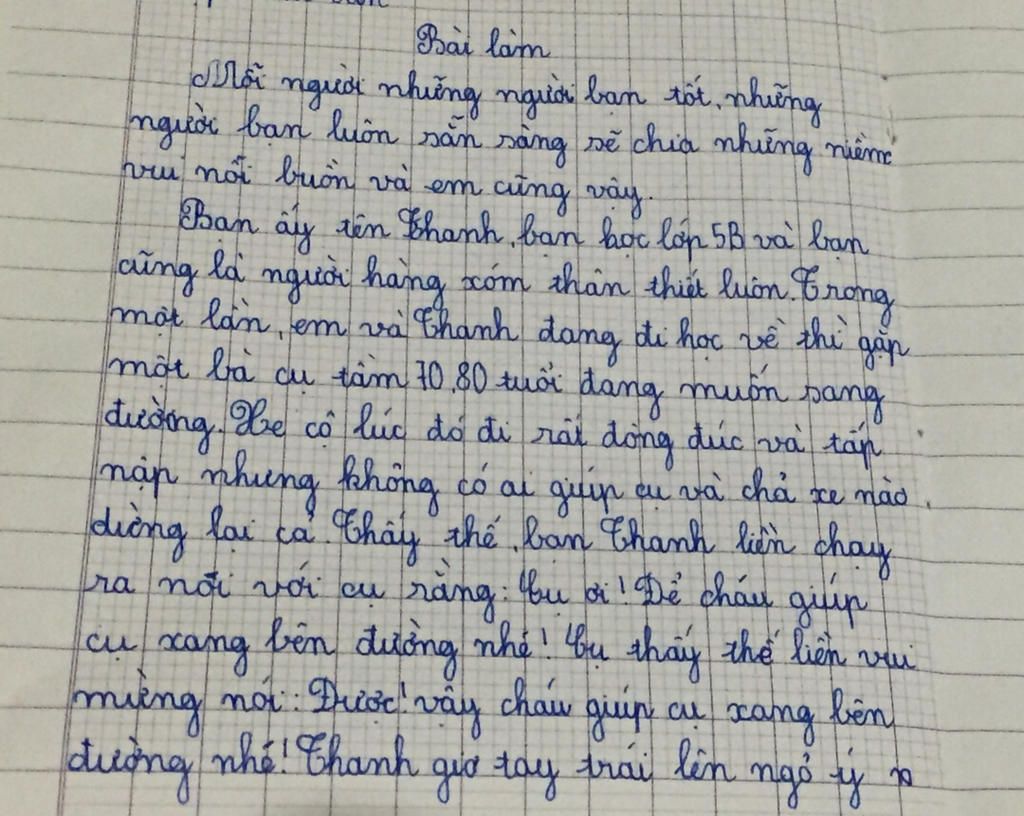 Bài làm
Mỗi người những người bạn tốt, những
người bạn luôn sẵn sàng sẽ chia những niềm
vui nỗi buồn và em cũng vậy.
Bạn ấy tên Thanh, bạn học lớp 5B và bạn
cũng là người hàng xóm thân thiết luôn. Trong
một lần, em và Thanh đang đi học về thì gặp
một bà cụ tầm 70, 80 tuổi đang muốn sang
đường. Xe cộ lúc đó đi rất đông đúc và tấp
nập nhưng không có ai giúp cụ và chả xe nào
dừng lại cả. Thấy thế, bạn Thanh liền chạy
ra nói với cụ rằng: Cụ ơi! Để cháu giúp
cụ xang bên đường nhé! Cụ thấy thế liền vui
mừng nói: Được! vậy cháu giúp cụ xang bên
đường nhé! Thanh giơ tay trái lên ngỏ ý